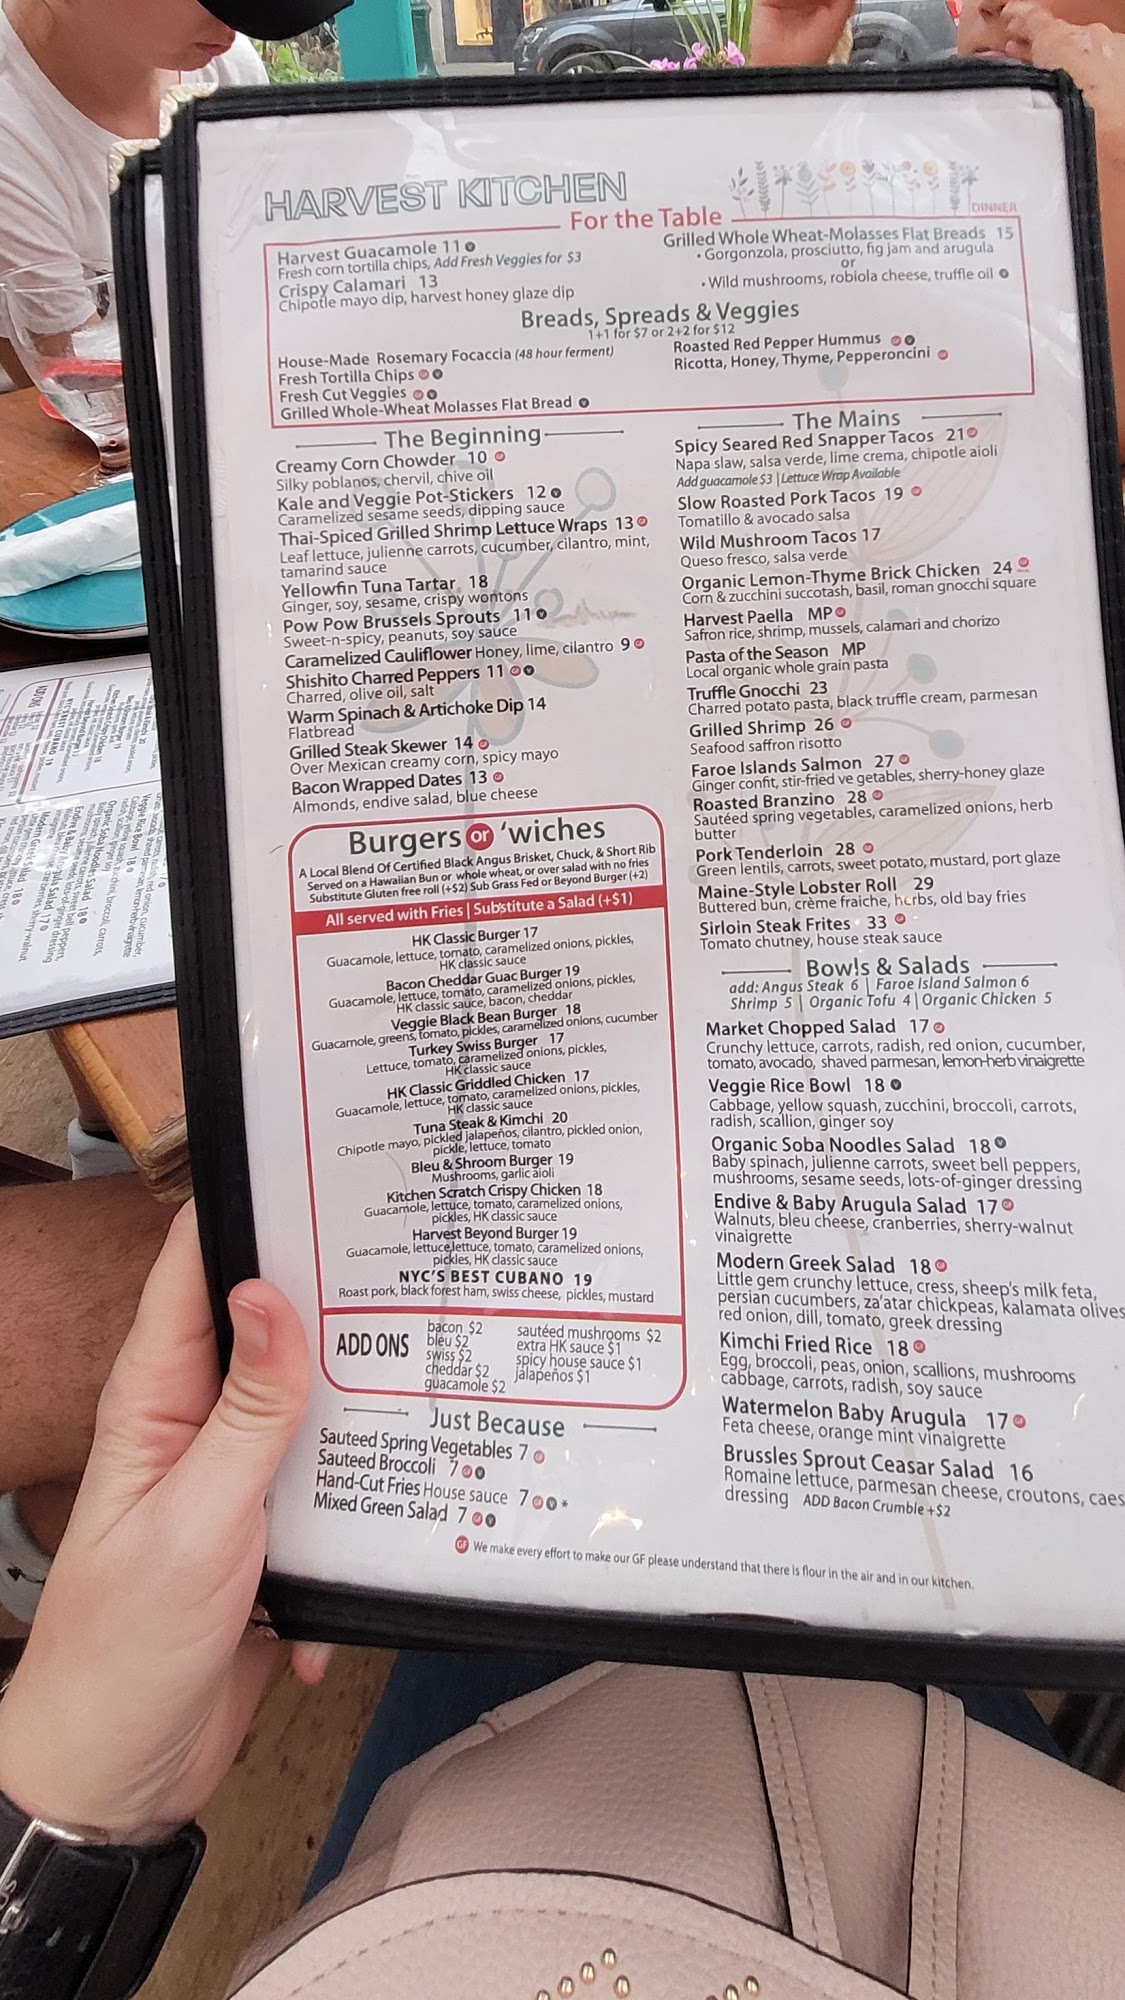 HARVEST KITCHEN
DINNER
For the Table
Harvest Guacamole 11 V
Fresh corn tortilla chips, Add Fresh Veggies for $3
Crispy Calamari 13
Chipotle mayo dip, harvest honey glaze dip
Grilled Whole Wheat-Molasses Flat Breads 15
• Gorgonzola, prosciutto, fig jam and arugula
or
• Wild mushrooms, robiola cheese, truffle oil V
Breads, Spreads & Veggies
1+1 for $7 or 2+2 for $12
House-Made Rosemary Focaccia (48 hour ferment)
Fresh Tortilla Chips GF V
Fresh Cut Veggies GF V
Grilled Whole-Wheat Molasses Flat Bread V
Roasted Red Pepper Hummus GF V
Ricotta, Honey, Thyme, Pepperoncini GF
The Beginning
Creamy Corn Chowder 10 GF
Silky poblanos, chervil, chive oil
Kale and Veggie Pot-Stickers 12 V
Caramelized sesame seeds, dipping sauce
Thai-Spiced Grilled Shrimp Lettuce Wraps 13 GF
Leaf lettuce, julienne carrots, cucumber, cilantro, mint,
tamarind sauce
Yellowfin Tuna Tartar 18
Ginger, soy, sesame, crispy wontons
Pow Pow Brussels Sprouts 11 V
Sweet-n-spicy, peanuts, soy sauce
Caramelized Cauliflower Honey, lime, cilantro 9 GF
Shishito Charred Peppers 11 GF V
Charred, olive oil, salt
Warm Spinach & Artichoke Dip 14
Flatbread
Grilled Steak Skewer 14 GF
Over Mexican creamy corn, spicy mayo
Bacon Wrapped Dates 13 GF
Almonds, endive salad, blue cheese
Burgers or 'wiches
A Local Blend Of Certified Black Angus Brisket, Chuck, & Short Rib
Served on a Hawaiian Bun or whole wheat, or over salad with no fries
Substitute Gluten free roll (+$2) Sub Grass Fed or Beyond Burger (+2)
All served with Fries | Substitute a Salad (+$1)
HK Classic Burger 17
Guacamole, lettuce, tomato, caramelized onions, pickles,
HK classic sauce
Bacon Cheddar Guac Burger 19
Guacamole, lettuce, tomato, caramelized onions, pickles,
HK classic sauce, bacon, cheddar
Veggie Black Bean Burger 18
Guacamole, greens, tomato, pickles, caramelized onions, cucumber
Turkey Swiss Burger 17
Lettuce, tomato, caramelized onions, pickles,
HK classic sauce
HK Classic Griddled Chicken 17
Guacamole, lettuce, tomato, caramelized onions, pickles,
HK classic sauce
Tuna Steak & Kimchi 20
Chipotle mayo, pickled jalapeños, cilantro, pickled onion,
pickle, lettuce, tomato
Bleu & Shroom Burger 19
Mushrooms, garlic aioli
Kitchen Scratch Crispy Chicken 18
Guacamole, lettuce, tomato, caramelized onions,
pickles, HK classic sauce
Harvest Beyond Burger 19
Guacamole, lettuce,lettuce, tomato, caramelized onions,
pickles, HK classic sauce
NYC'S BEST CUBANO 19
Roast pork, black forest ham, swiss cheese, pickles, mustard
ADD ONS
bacon $2
bleu $2
swiss $2
cheddar $2
guacamole $2
sautéed mushrooms $2
extra HK sauce $1
spicy house sauce $1
jalapeños $1
Just Because
Sauteed Spring Vegetables 7 GF
Sauteed Broccoli 7 GF V
Hand-Cut Fries House sauce 7 GF V *
Mixed Green Salad 7 GF V
The Mains
Spicy Seared Red Snapper Tacos 21 GF
Napa slaw, salsa verde, lime crema, chipotle aioli
Add guacamole $3 | Lettuce Wrap Available
Slow Roasted Pork Tacos 19 GF
Tomatillo & avocado salsa
Wild Mushroom Tacos 17
Queso fresco, salsa verde
Organic Lemon-Thyme Brick Chicken 24 GF
Corn & zucchini succotash, basil, roman gnocchi square
Harvest Paella MP GF
Safron rice, shrimp, mussels, calamari and chorizo
Pasta of the Season MP
Local organic whole grain pasta
Truffle Gnocchi 23
Charred potato pasta, black truffle cream, parmesan
Grilled Shrimp 26 GF
Seafood saffron risotto
Faroe Islands Salmon 27 GF
Ginger confit, stir-fried ve getables, sherry-honey glaze
Roasted Branzino 28 GF
Sautéed spring vegetables, caramelized onions, herb
butter
Pork Tenderloin 28 GF
Green lentils, carrots, sweet potato, mustard, port glaze
Maine-Style Lobster Roll 29
Buttered bun, crème fraiche, herbs, old bay fries
Sirloin Steak Frites 33 GF
Tomato chutney, house steak sauce
Bowls & Salads
add: Angus Steak 6 | Faroe Island Salmon 6
Shrimp 5 | Organic Tofu 4 | Organic Chicken 5
Market Chopped Salad 17 GF
Crunchy lettuce, carrots, radish, red onion, cucumber,
tomato, avocado, shaved parmesan, lemon-herb vinaigrette
Veggie Rice Bowl 18 V
Cabbage, yellow squash, zucchini, broccoli, carrots,
radish, scallion, ginger soy
Organic Soba Noodles Salad 18 V
Baby spinach, julienne carrots, sweet bell peppers,
mushrooms, sesame seeds, lots-of-ginger dressing
Endive & Baby Arugula Salad 17 GF
Walnuts, bleu cheese, cranberries, sherry-walnut
vinaigrette
Modern Greek Salad 18 GF
Little gem crunchy lettuce, cress, sheep's milk feta,
persian cucumbers, za'atar chickpeas, kalamata olives
red onion, dill, tomato, greek dressing
Kimchi Fried Rice 18 GF
Egg, broccoli, peas, onion, scallions, mushrooms
cabbage, carrots, radish, soy sauce
Watermelon Baby Arugula 17 GF
Feta cheese, orange mint vinaigrette
Brussles Sprout Ceasar Salad 16
Romaine lettuce, parmesan cheese, croutons, caes
dressing ADD Bacon Crumble +$2
GF We make every effort to make our GF please understand that there is flour in the air and in our kitchen.